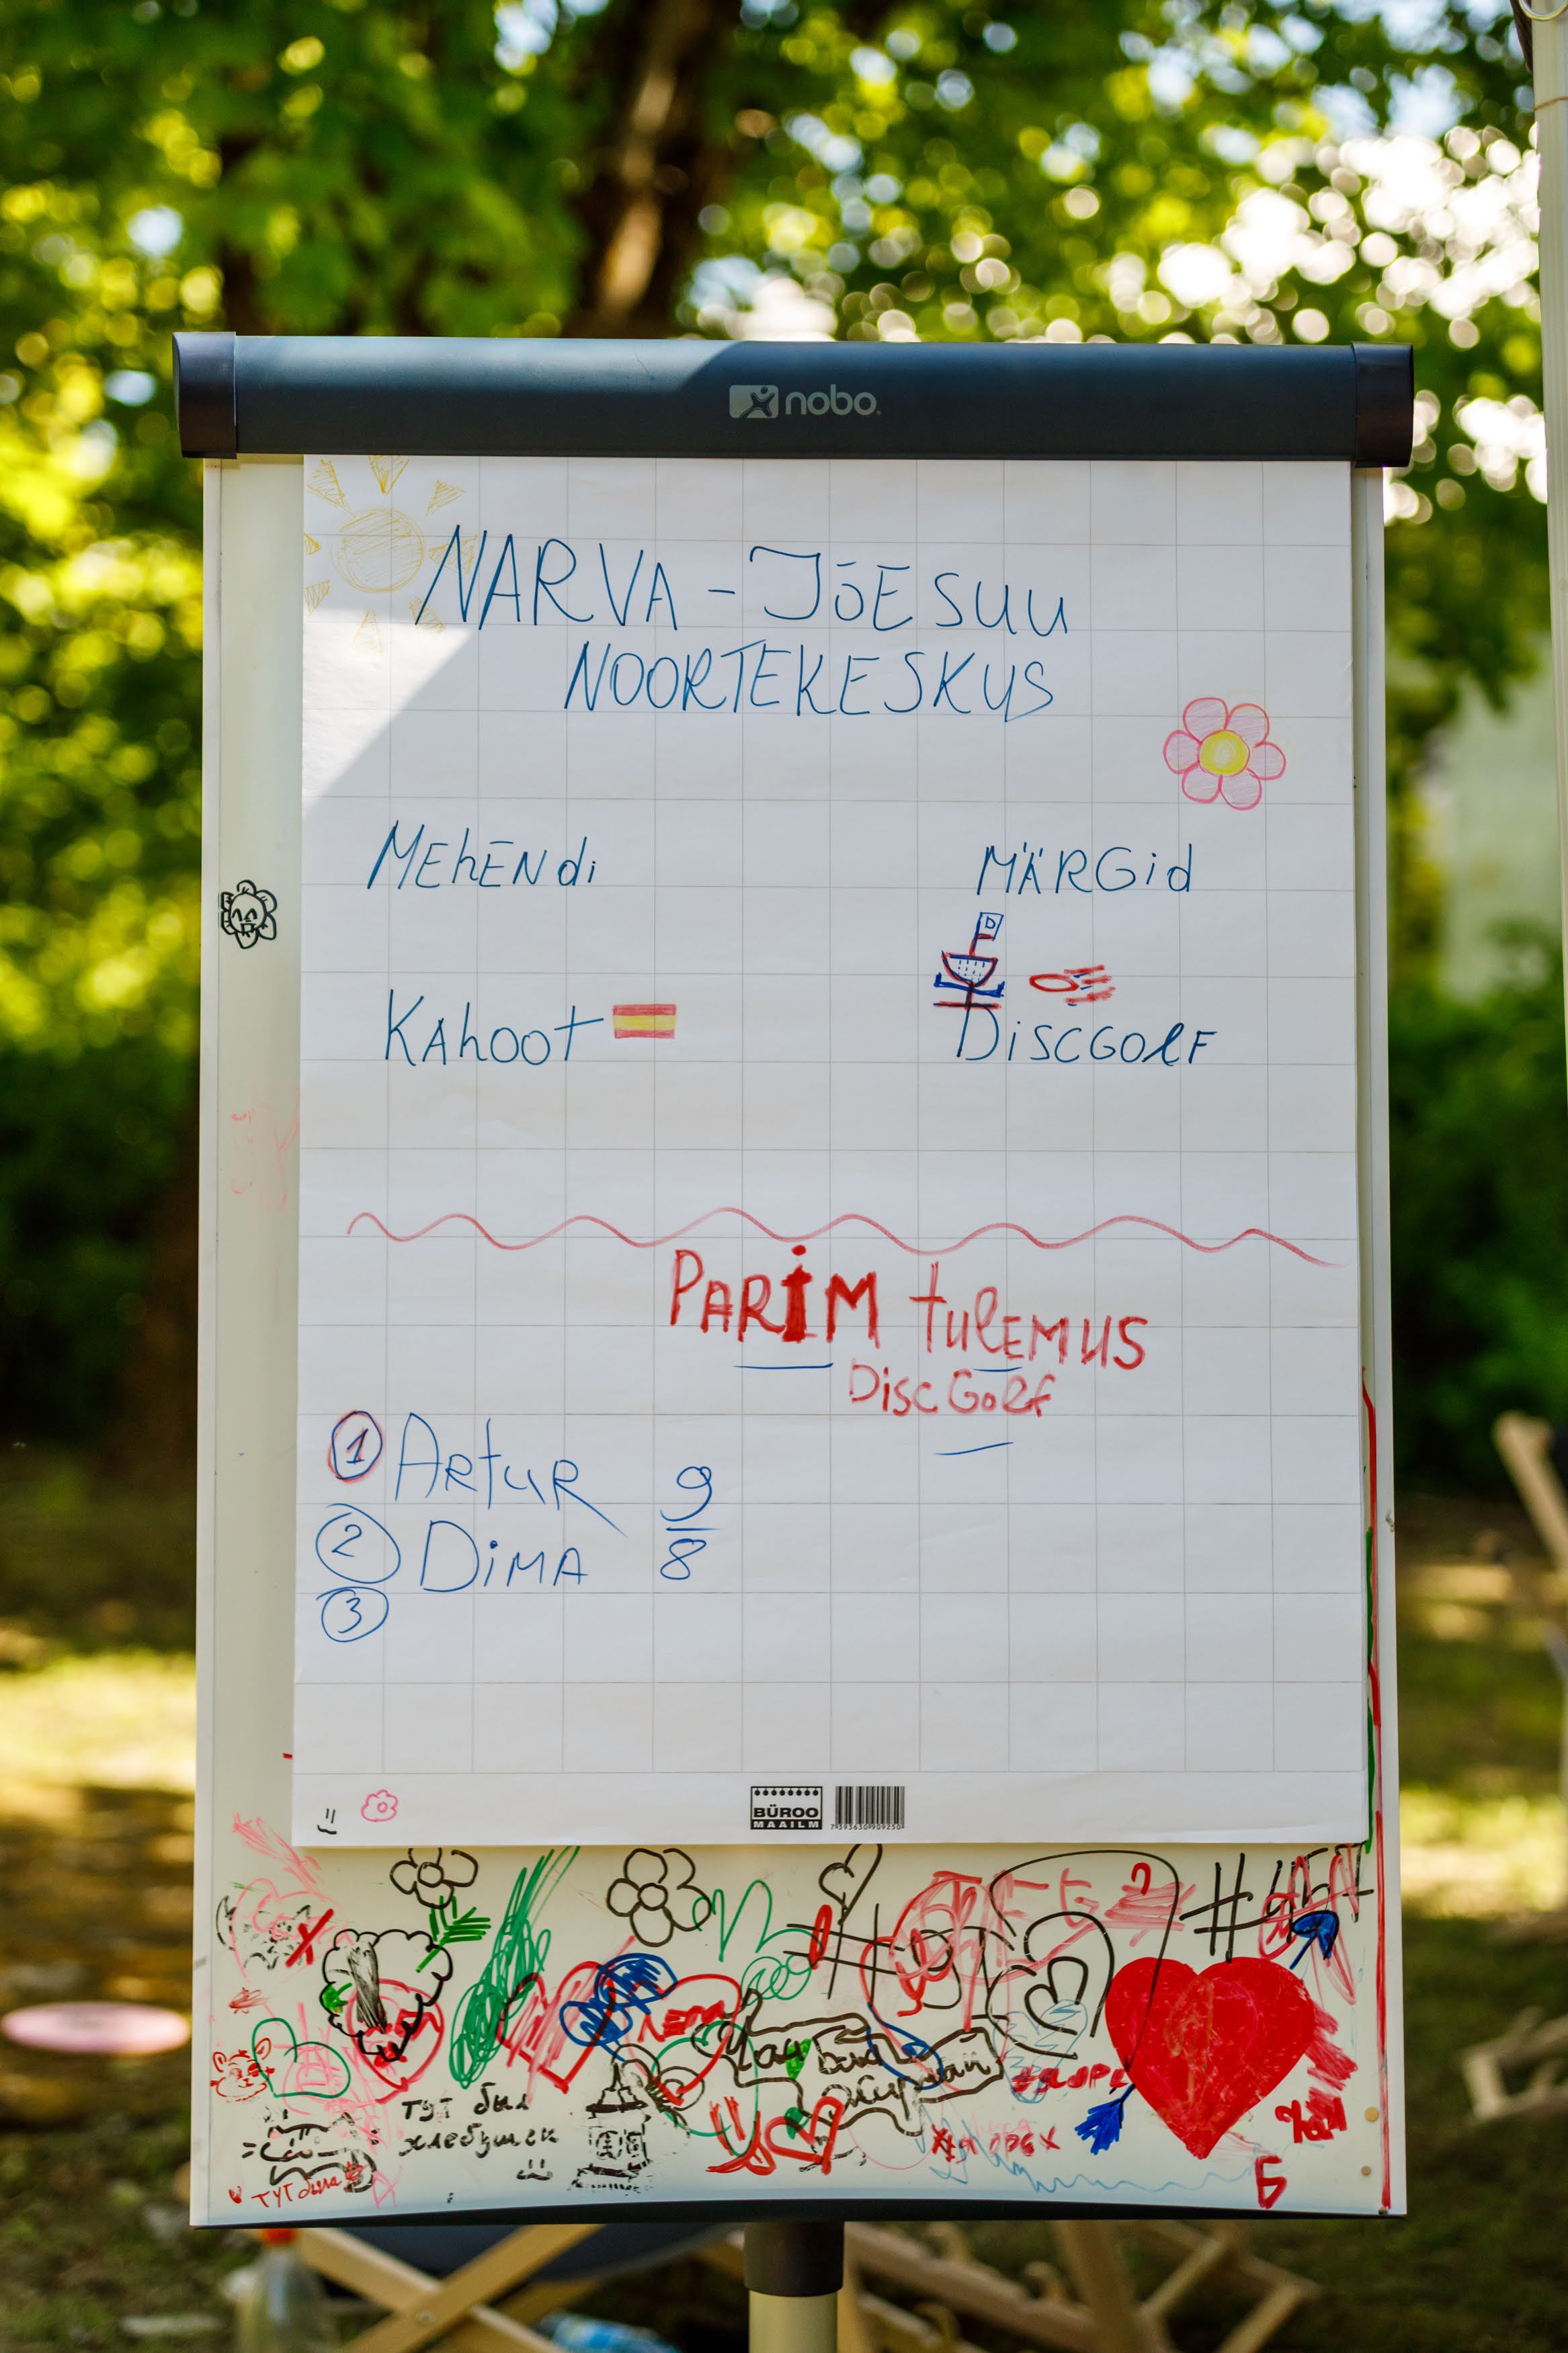 nobo
NARVA - JÕESUU
NOORTEKESKUS
MEhENdi
MÄRGid
D
KAhOOT
DiscGOlF
PARiM tulEMUS
Disc Golf
1 ARtuR 9
2 DiMA 8
3
BÜROO
MAAILM
7393630909250
тут был
хлебушек
тут была
Б